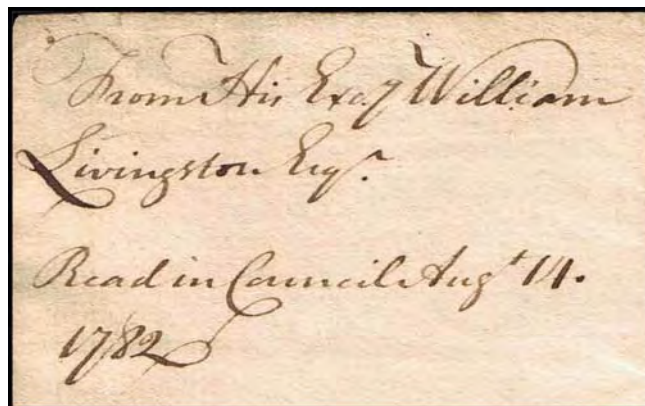 From His Excy William
Livingston Esqr.
Read in Council Augt 14.
1782